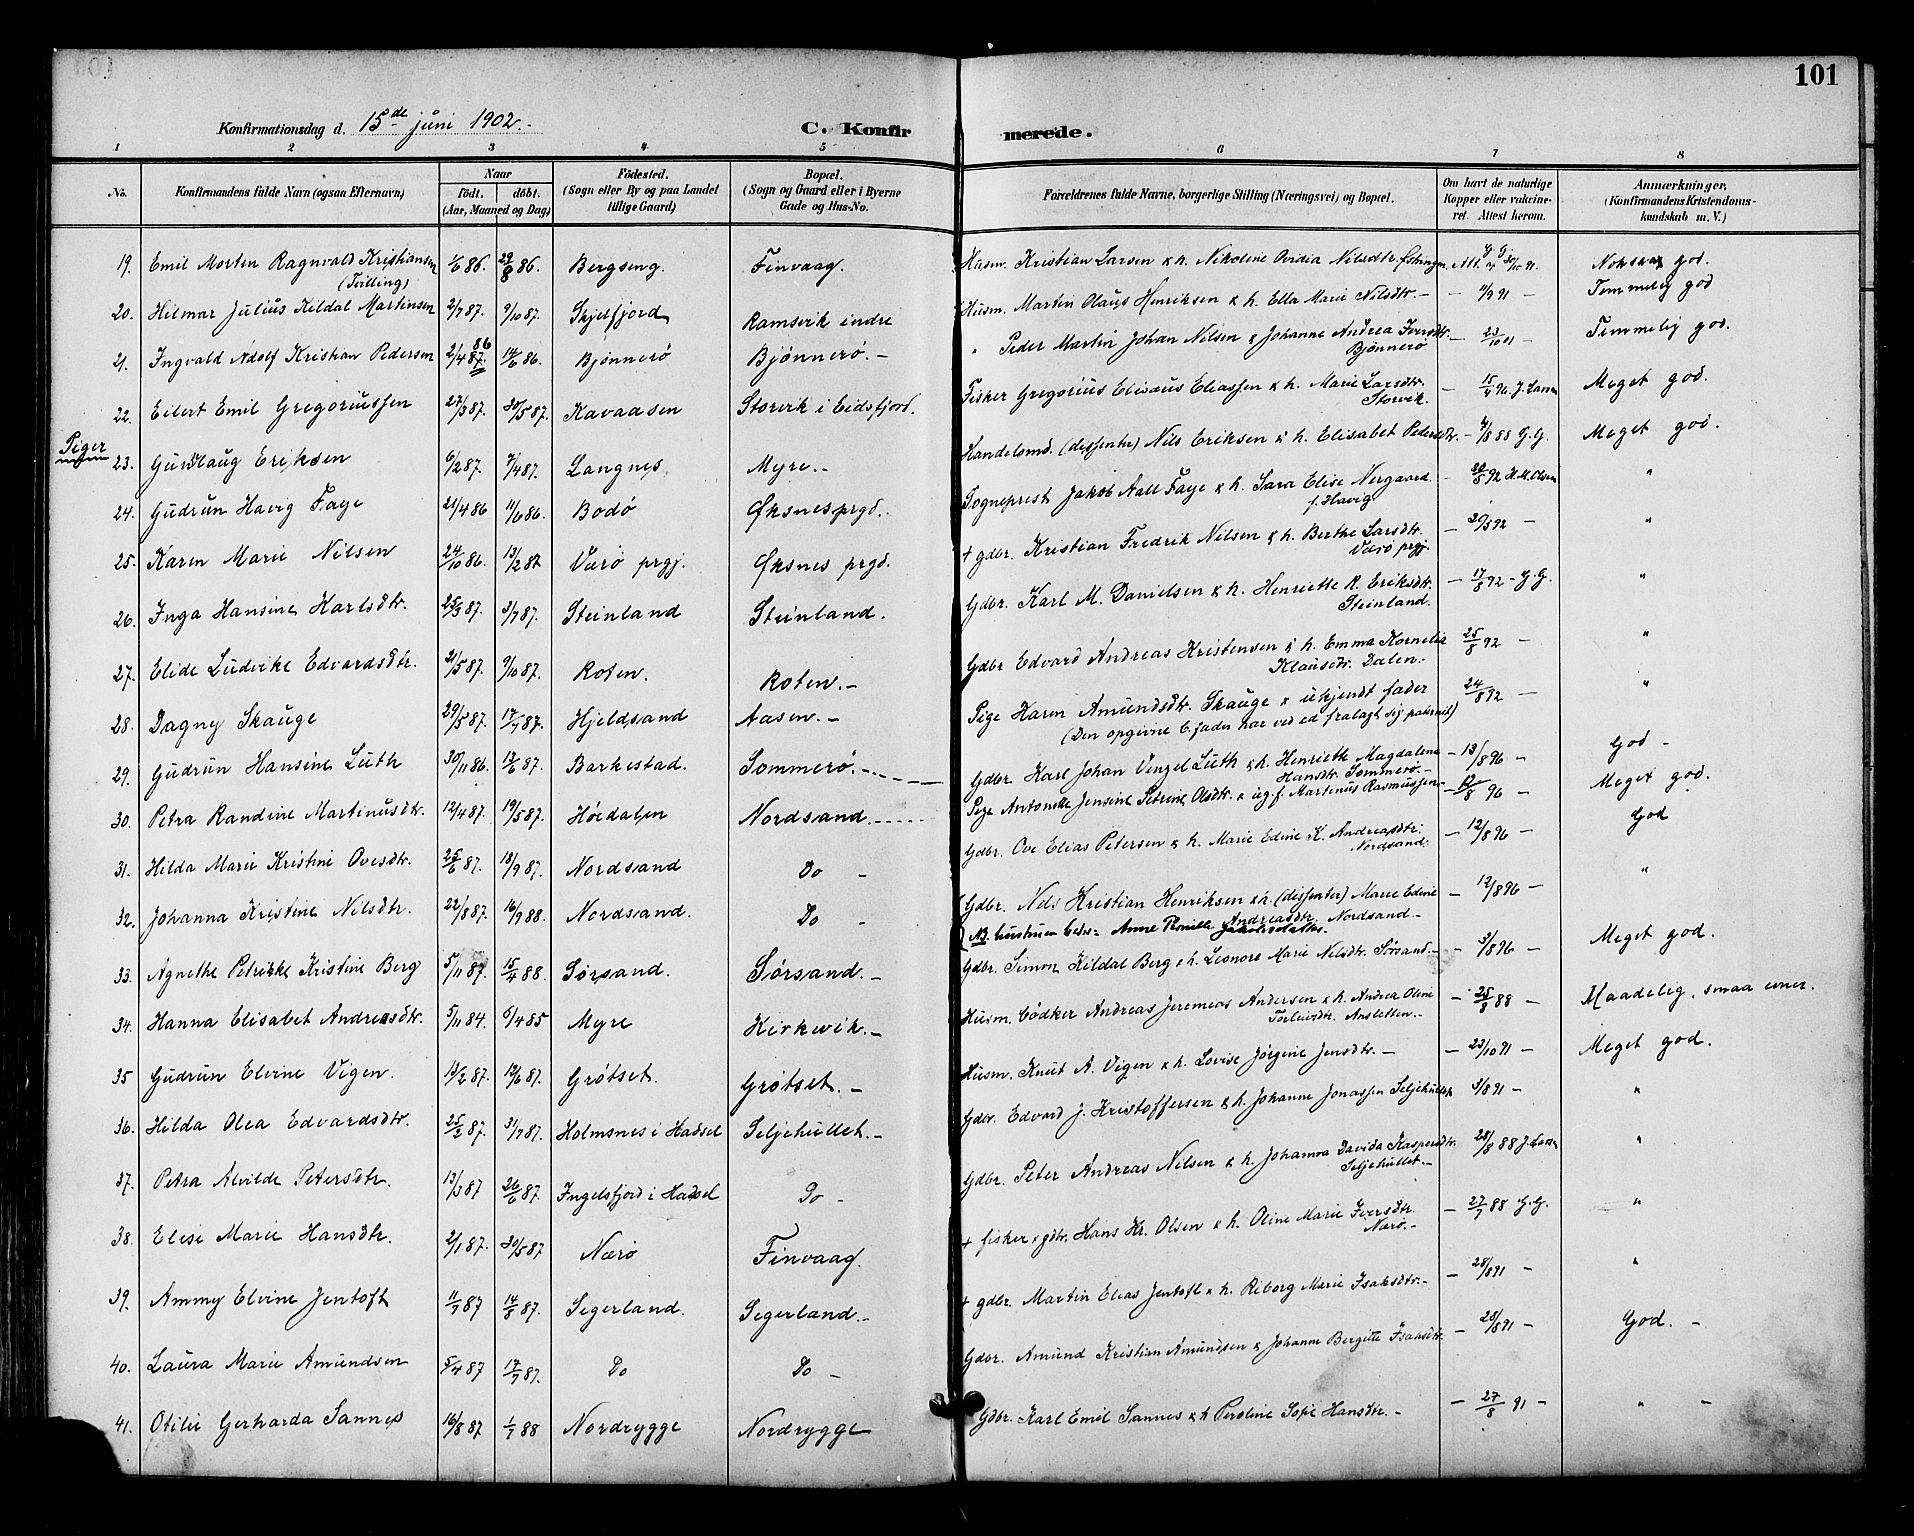 101
Konfirmationsdag d. 15de juni 1902.
C. Konfirmerede.
1 2 3 4 5 6 7 8
No. Konfirmandens fulde Navn (ogsaa Efternavn) Naar født. døbt. (Aar, Maaned og Dag) Fødested. (Sogn eller By og paa Landet tillige Gaard) Bopæl. (Sogn og Gaard eller i Byerne Gade og Hus-No. Forældrenes fulde Navne, borgerlige Stilling (Næringsvei) og Bopæl. Om havt de naturlige Kopper eller vakcineret. Attest herom. Anmærkninger. (Konfirmandens Kristendomskundskab m. V.)
19. Emil Morten Ragnvald Kristiansen (Tvilling) 1/6 86. 29/8 86. Bergseng. Finvaag. Husm. Kristian Larsen & h. Nikoline Ovidia Nilsdtr. Att. 30/10 91. god.
20. Hilmar Julius Kildal Martinsen 2/7 87. 9/10 87. Skjelfjord Ramsvik indre Husm. Martin Olaus Henriksen & h. Ella Marie Nilsdtr. — — 11/9 91 — Temmelig god
21. Ingvald Adolf Kristian Pedersen 2/4 87. 86 14/6 86. Bjønnerø Bjønnerø. — " Peder Martin Johan Nilsen & Johanne Andrea Iversdtr. Bjønnerø — 23/10 01 — Temmelig god.
22. Eilert Emil Gregoriussen 27/3 87. 30/5 87. Kavaasen Storvik i Eidsfjord. Fisker Gregorius Elisæus Eliassen & h. Marie Larsdtr. Storvik. — 15/4 96 J. Larsen Meget god.
Piger
23. Gudlaug Eriksen 6/2 87. 7/4 87. Langnes Myre. — Handelsmd. (dissenter) Nils Eriksen & h. Elisabet Pedersdtr. — 4/8 88 G. G. Meget god.
24. Gudrun Havig Faye 21/4 86 11/6 86. Bodø Øksnesprgd. Sogneprest Jakob Aall Faye & h. Sara Elise Nergaard f. Havig — 20/5 92 H. M. Olsen "
25. Karen Marie Nilsen 24/10 86. 13/2 87 Værø prgj. Øksnes prgd. + gdbr. Kristian Fredrik Nilsen & h. Berthe Larsdtr. Værø prgj. — 20/5 92 — "
26. Inga Hansine Karlsdtr. 25/3 87. 3/7 87. Steinland Steinland. Gdbr. Karl M. Danielsen & h. Henriette R. Eriksdtr. Steinland. — 17/8 92 — G. G. "
27. Elide Ludvike Edvardsdtr. 21/5 87. 9/10 87. Roten. Roten. — Gdbr Edvard Andreas Kristensen & h. Emma Kornelia Klausdtr. Dalen. 25/8 92 — "
28. Dagny Skauge 29/5 87. 17/7 87. Hjeldsand Aasen. — Pige Karen Amundsdtr. Skauge & ukjendt fader (Den opgivne b.fader har ved ed fralagt sig paternit) 24/8 92 — "
29. Gudrun Hansine Luth 30/11 86. 12/6 87. Barkestad. Sommerø. — Gdbr. Karl Johan Vingel Luth & h. Henriette Magdalena Hansdtr. Sommerø. — — 13/8 96 — God —
30. Petra Randine Martinusdtr. 12/4 87. 19/5 87. Høidalen Nordsand. Pige Antonette Jensine Petrine Olsdtr. & ug. f. Martinus Rasmussen — 12/8 96 — Meget god.
31. Hilda Marie Kristine Ovesdtr. 25/6 87. 18/9 87. Nordsand Do — Gdbr. Ove Elias Petersen & h. Marie Edine K. Andreasdtr. Nordsand. — 12/8 96 — God
32. Johanna Kristine Nilsdtr. 22/8 87. 16/9 88. Nordsand. Do — Gdbr. Nils Kristian Henriksen & h. (dissenter) Marie Edine Andreasdtr. Nordsand — — 12/8 96 — "
NB. hustruen heder: Anne Pernille
33. Agnethe Petrikke Kristine Berg 5/11 87. 15/4 88. Sørsand. Sørsand. — Gdbr. Simon Kildal Berg & h. Leonore Marie Nilsdtr. Sørsand. — — 3/8 96 — Meget god.
34. Hanna Elisabet Andreasdtr. 5/11 84. 6/4 85 Myre Kirkevik. — Husm. bødker Andreas Jeremias Andersen & h. Andrea Oline Torleivsdtr. Ansletten. — — 25/8 88 — Maadelig, smaa evner.
35 Gudrun Elvine Vigen. 13/2 87. 19/6 87. Grøtset. Grøtset. — Husm. Knut A. Vigen & h. Lovise Jørgine Jensdtr. — — 23/10 91 — Meget god.
36. Hilda Olea Edvardsdtr. 25/2 87. 31/7 87. Holmsnes i Hadsel Seljehullet. — Gdbr. Edvard J. Kristoffersen & h. Johanne Jonassen Seljehullet 3/8 91 — "
37. Petra Alvilde Petersdtr. 13/3 87 26/6 87. Ingelsfjord i Hadsel Do — Gdbr. Peter Andreas Nilsen & h. Johanna Davida Kaspersdtr. Seljehullet. — 28/8 88 J. Larsen "
38. Elise Marie Hansdtr. 2/1 87. 30/5 87 Nærø Finvaag. + fisker & gdbr. Hans Kr. Olsen & h. Oline Marie Iversdtr. Nærø. — — 27/7 88 G. G. "
39. Ammy Elvine Jentoft 11/7 87 14/8 87. Segerland. Segerland. — + gdbr. Martin Elias Jentoft & h. Riborg Marie Isaksdtr. — — 28/8 91 — "
40. Laura Marie Amundsen 5/4 87 17/7 87. Do Do — Gdbr. Amund Kristian Amundsen & Johanne Bergitte Isaksdtr. — 28/8 91 — God. —
41. Otilie Gerharda Sannes 16/8 87 1/7 88 Nordrygge Nordrygge Gdbr. Karl Emil Sannes & h Peroline Sofie Hansdtr. — — 27/8 91 — " —